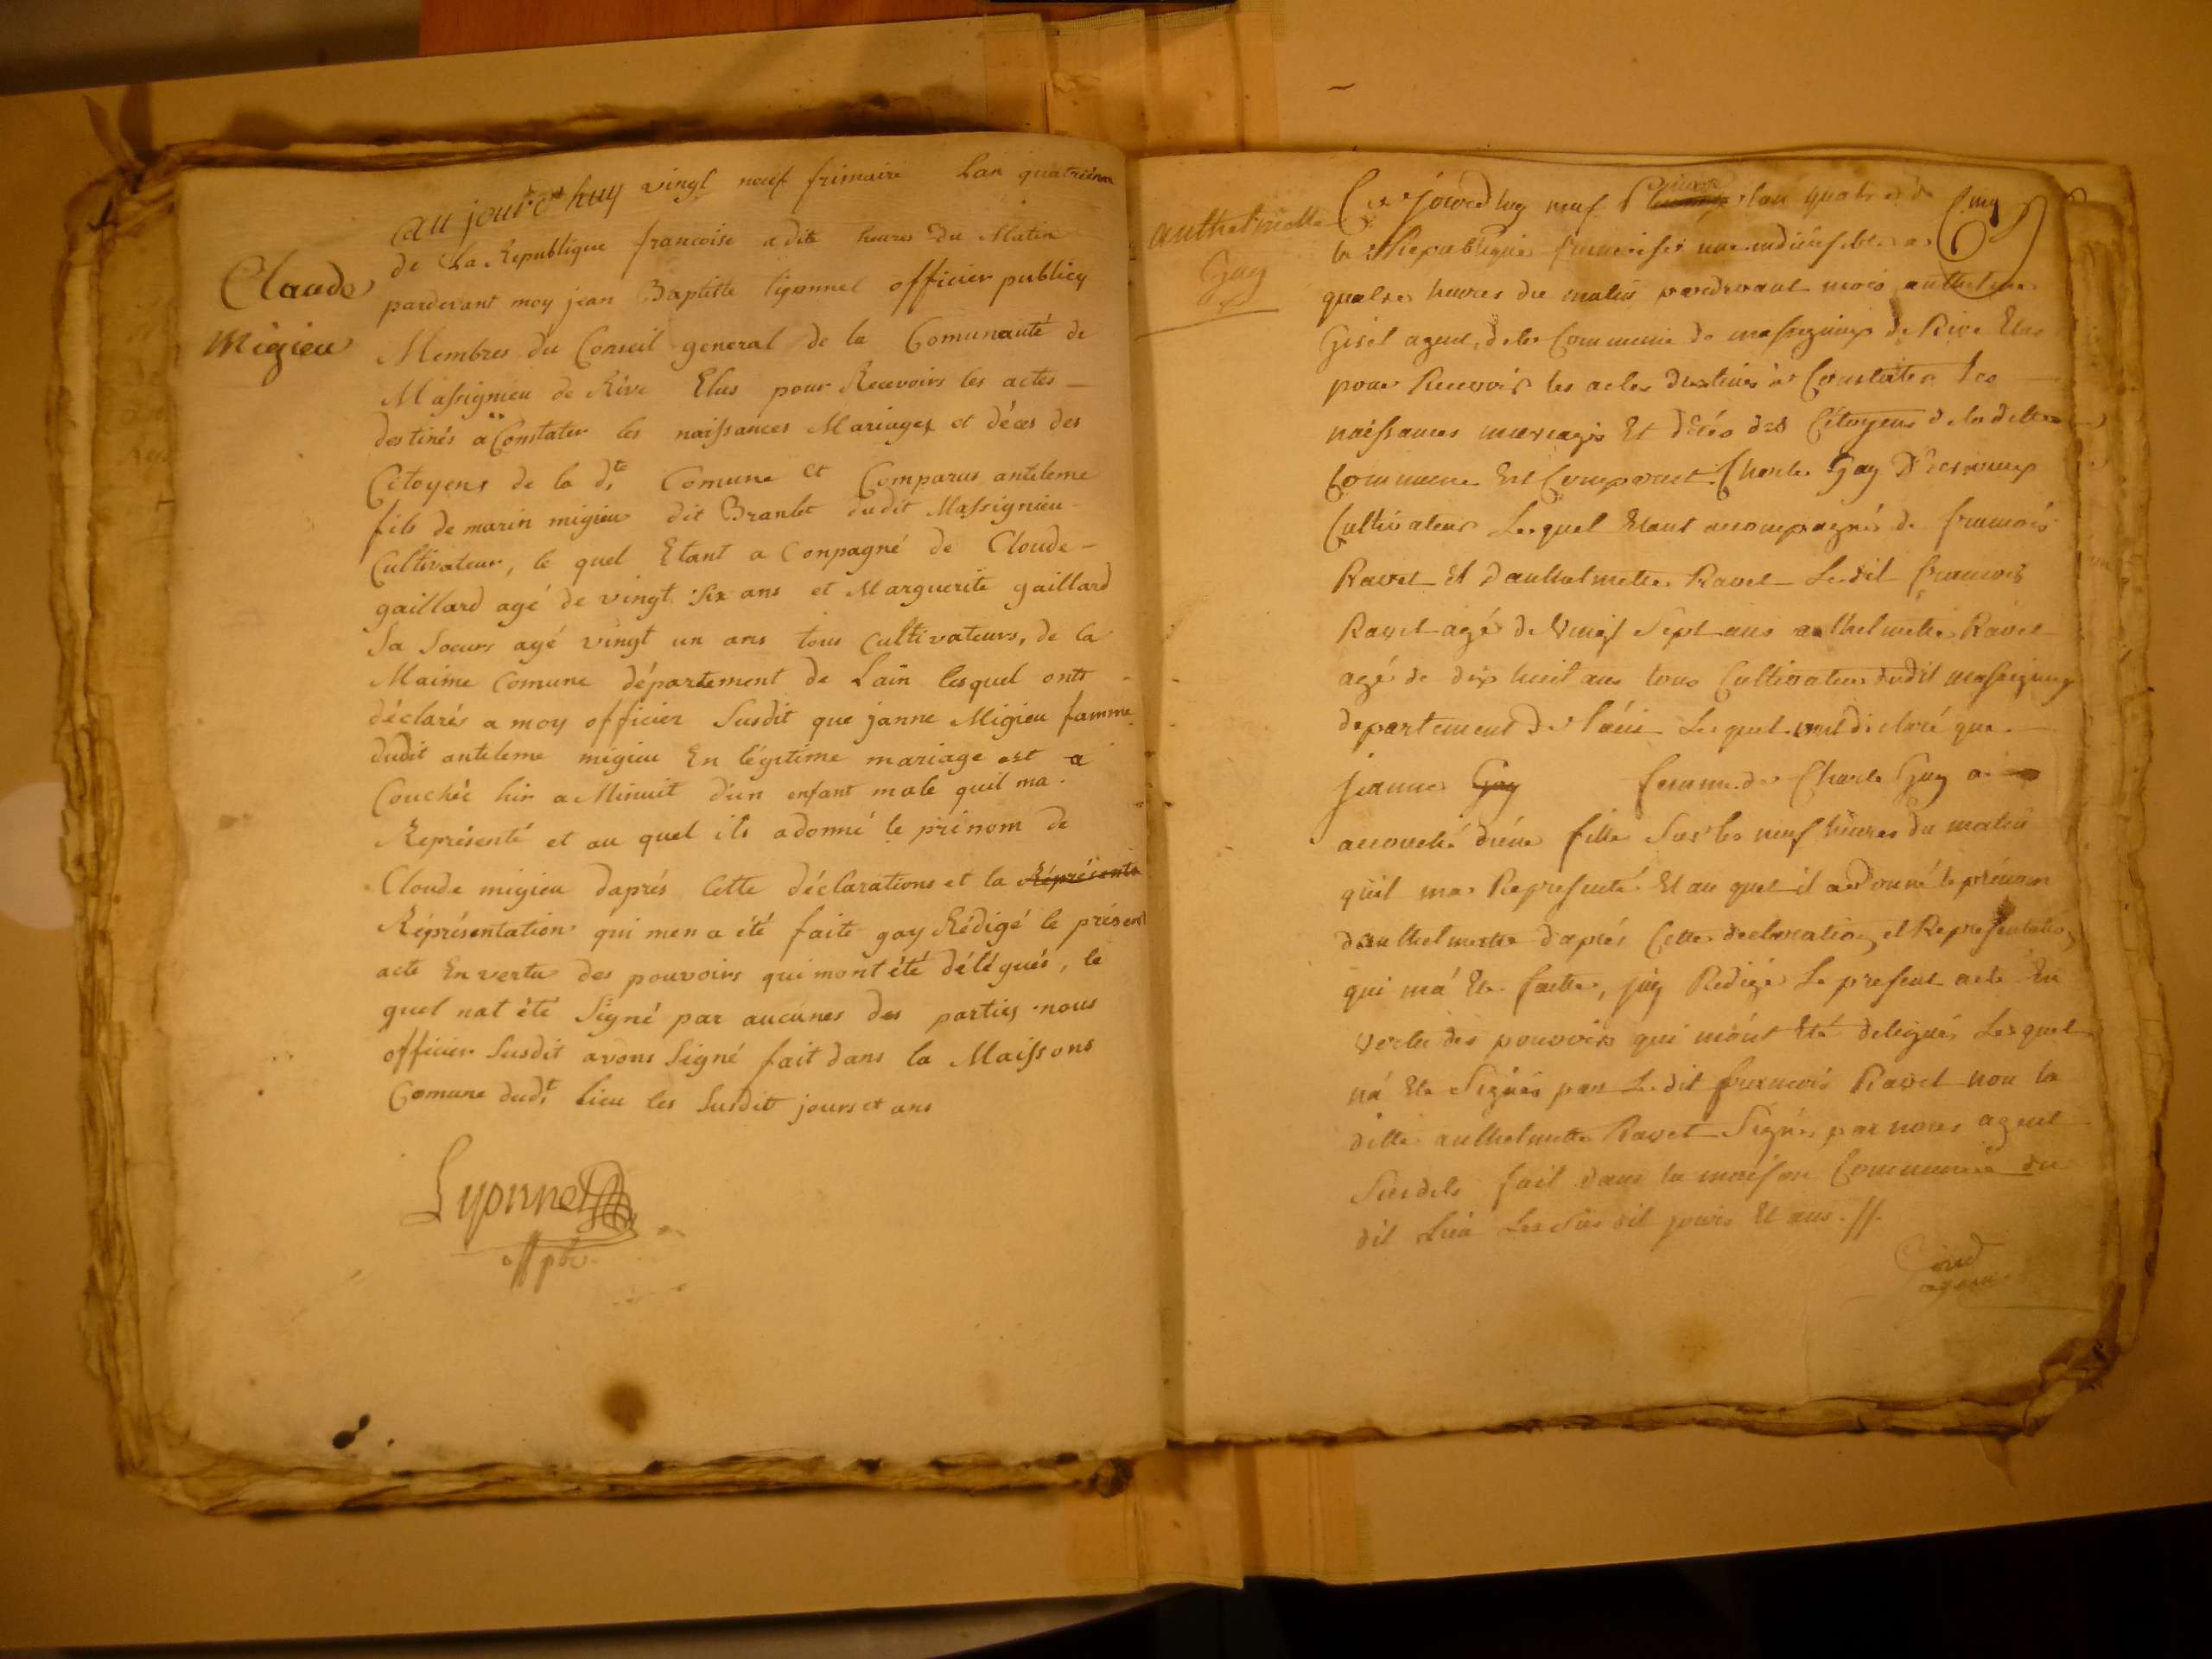 Claude
Migieu
au jourd'huy vingt neuf frimaire Lan quatrième
de La Republique francoise a dite heures Du Matin
pardevant moy jean Baptiste lyonnel officier publicq
Membres du Conseil general de la Comunauté de
Massignieu de Rive Elus pour Recevoirs les actes
destinés a Constater les naissances Mariages et décès des
Citoyens de la dte Comune et Comparus anteleme
fils de marin migieu dit Branlet dudit Massignieu
Cultivateur, le quel Etant a Conpagné de Cloude
gaillard agé de vingt six ans et Marguerite gaillard
Sa Soeurs agé vingt un ans tous cultivateurs, de la
Maime Comune département de Lain lesquel onts
déclarés a moy officier Susdit que janne Migieu famme
dudit anteleme migieu En légitime mariage est a
Couchée hir a Minuit d'un enfant male quil ma
Représenté et au quel ils adonné le prénom de
Cloude migieu daprés Cette déclarations et la Représenta
Réprésentation qui men a été faite gay Rédigé le présent
acte En vertu des pouvoirs qui mont été délégués, le
quel nat été Signé par aucunes des parties nous
officier Susdit avons Signé fait dans la Maissons
Comune dudt lieu les Susdit jours et ans
Lyonnet
off pbc
anthelmette
Gay
jourd huy neuf lan quatre de
la Republique francoise une indivisible a
quatre heures du matin pardevant mois anthelme
agent de la Commune de massignieux de Rive Elus
pour Recevoir les actes destinés a Constater les
naissances mariages Et décés des Citoyens de la ditte
Commune Est Comparut Charle Gay
Cultivateur Lequel Etant accompagnés de francois
Ravet Et danthelmette Ravet Ledit francois
Ravet agé de Vingt Sept ans anthelmette Ravet
agé de dix huit ans tous Cultivateur dudit massigneux
departement de l'ain Lequel ont déclaré que
jeanne Gay femme de Charle Gay a
accouché d'une fille Sur les neuf heures du matin
quil ma Representé Et au quel il adonné le prénom
danthelmette d'aprés Cette declaration et Representation
qui m'a Ete faitte, jay Redigé Le present acte En
vertu des pouvoirs qui m'ont Eté delegués Lequel
na Ete Signés par Ledit francois Ravet non la
ditte anthelmette Ravet Signé, par nous agent
Susdits fait dans la maison Commune du
dit Lieu Les Sus dit jours Et ans.
agent